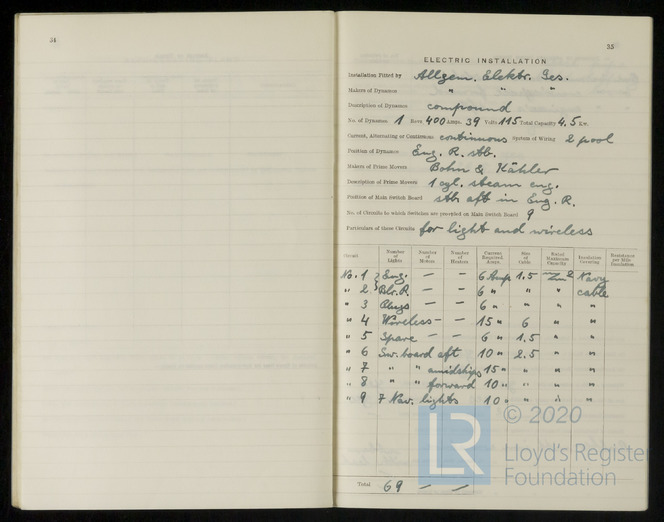 34
35
ELECTRIC INSTALLATION
Installation Fitted by Allgem. Elektr. Ges.
Makers of Dynamos " " "
Description of Dynamos compound
No. of Dynamos 1 Revs 400 Amps. 39 Volts 115 Total Capacity 4.5 Kw.
Current, Alternating or Continuous continuous System of Wiring 2 pool
Position of Dynamos Eng. R. stb.
Makers of Prime Movers Bohn & Kähler
Description of Prime Movers 1 cyl. steam eng.
Position of Main Switch Board stb aft in Eng. R.
No. of Circuits to which Switches are provided on Main Switch Board 9
Particulars of these Circuits for light and wireless
Circuit Number of Lights Number of Motors Number of Heaters Current Required Amps. Size of Cable Conductor Insulation Covering Resistance per Mile Insulation
No. 1 } Eng. — — 6 Amp 1.5 Navy
" 2 } Blr. R. — — 6 " " " cable
" 3 — — 6 " " " "
" 4 Wireless — — 15 " 6 " "
" 5 Spare — — 6 " 1.5 " "
" 6 Sw. board aft 10 " 2.5 " "
" 7 " " amidships 15 " " " "
" 8 " " forward 10 " " " "
" 9 7 Nav. lights 10 " " " "
© 2020
LR
Lloyd's Register
Foundation
Total 69 — —